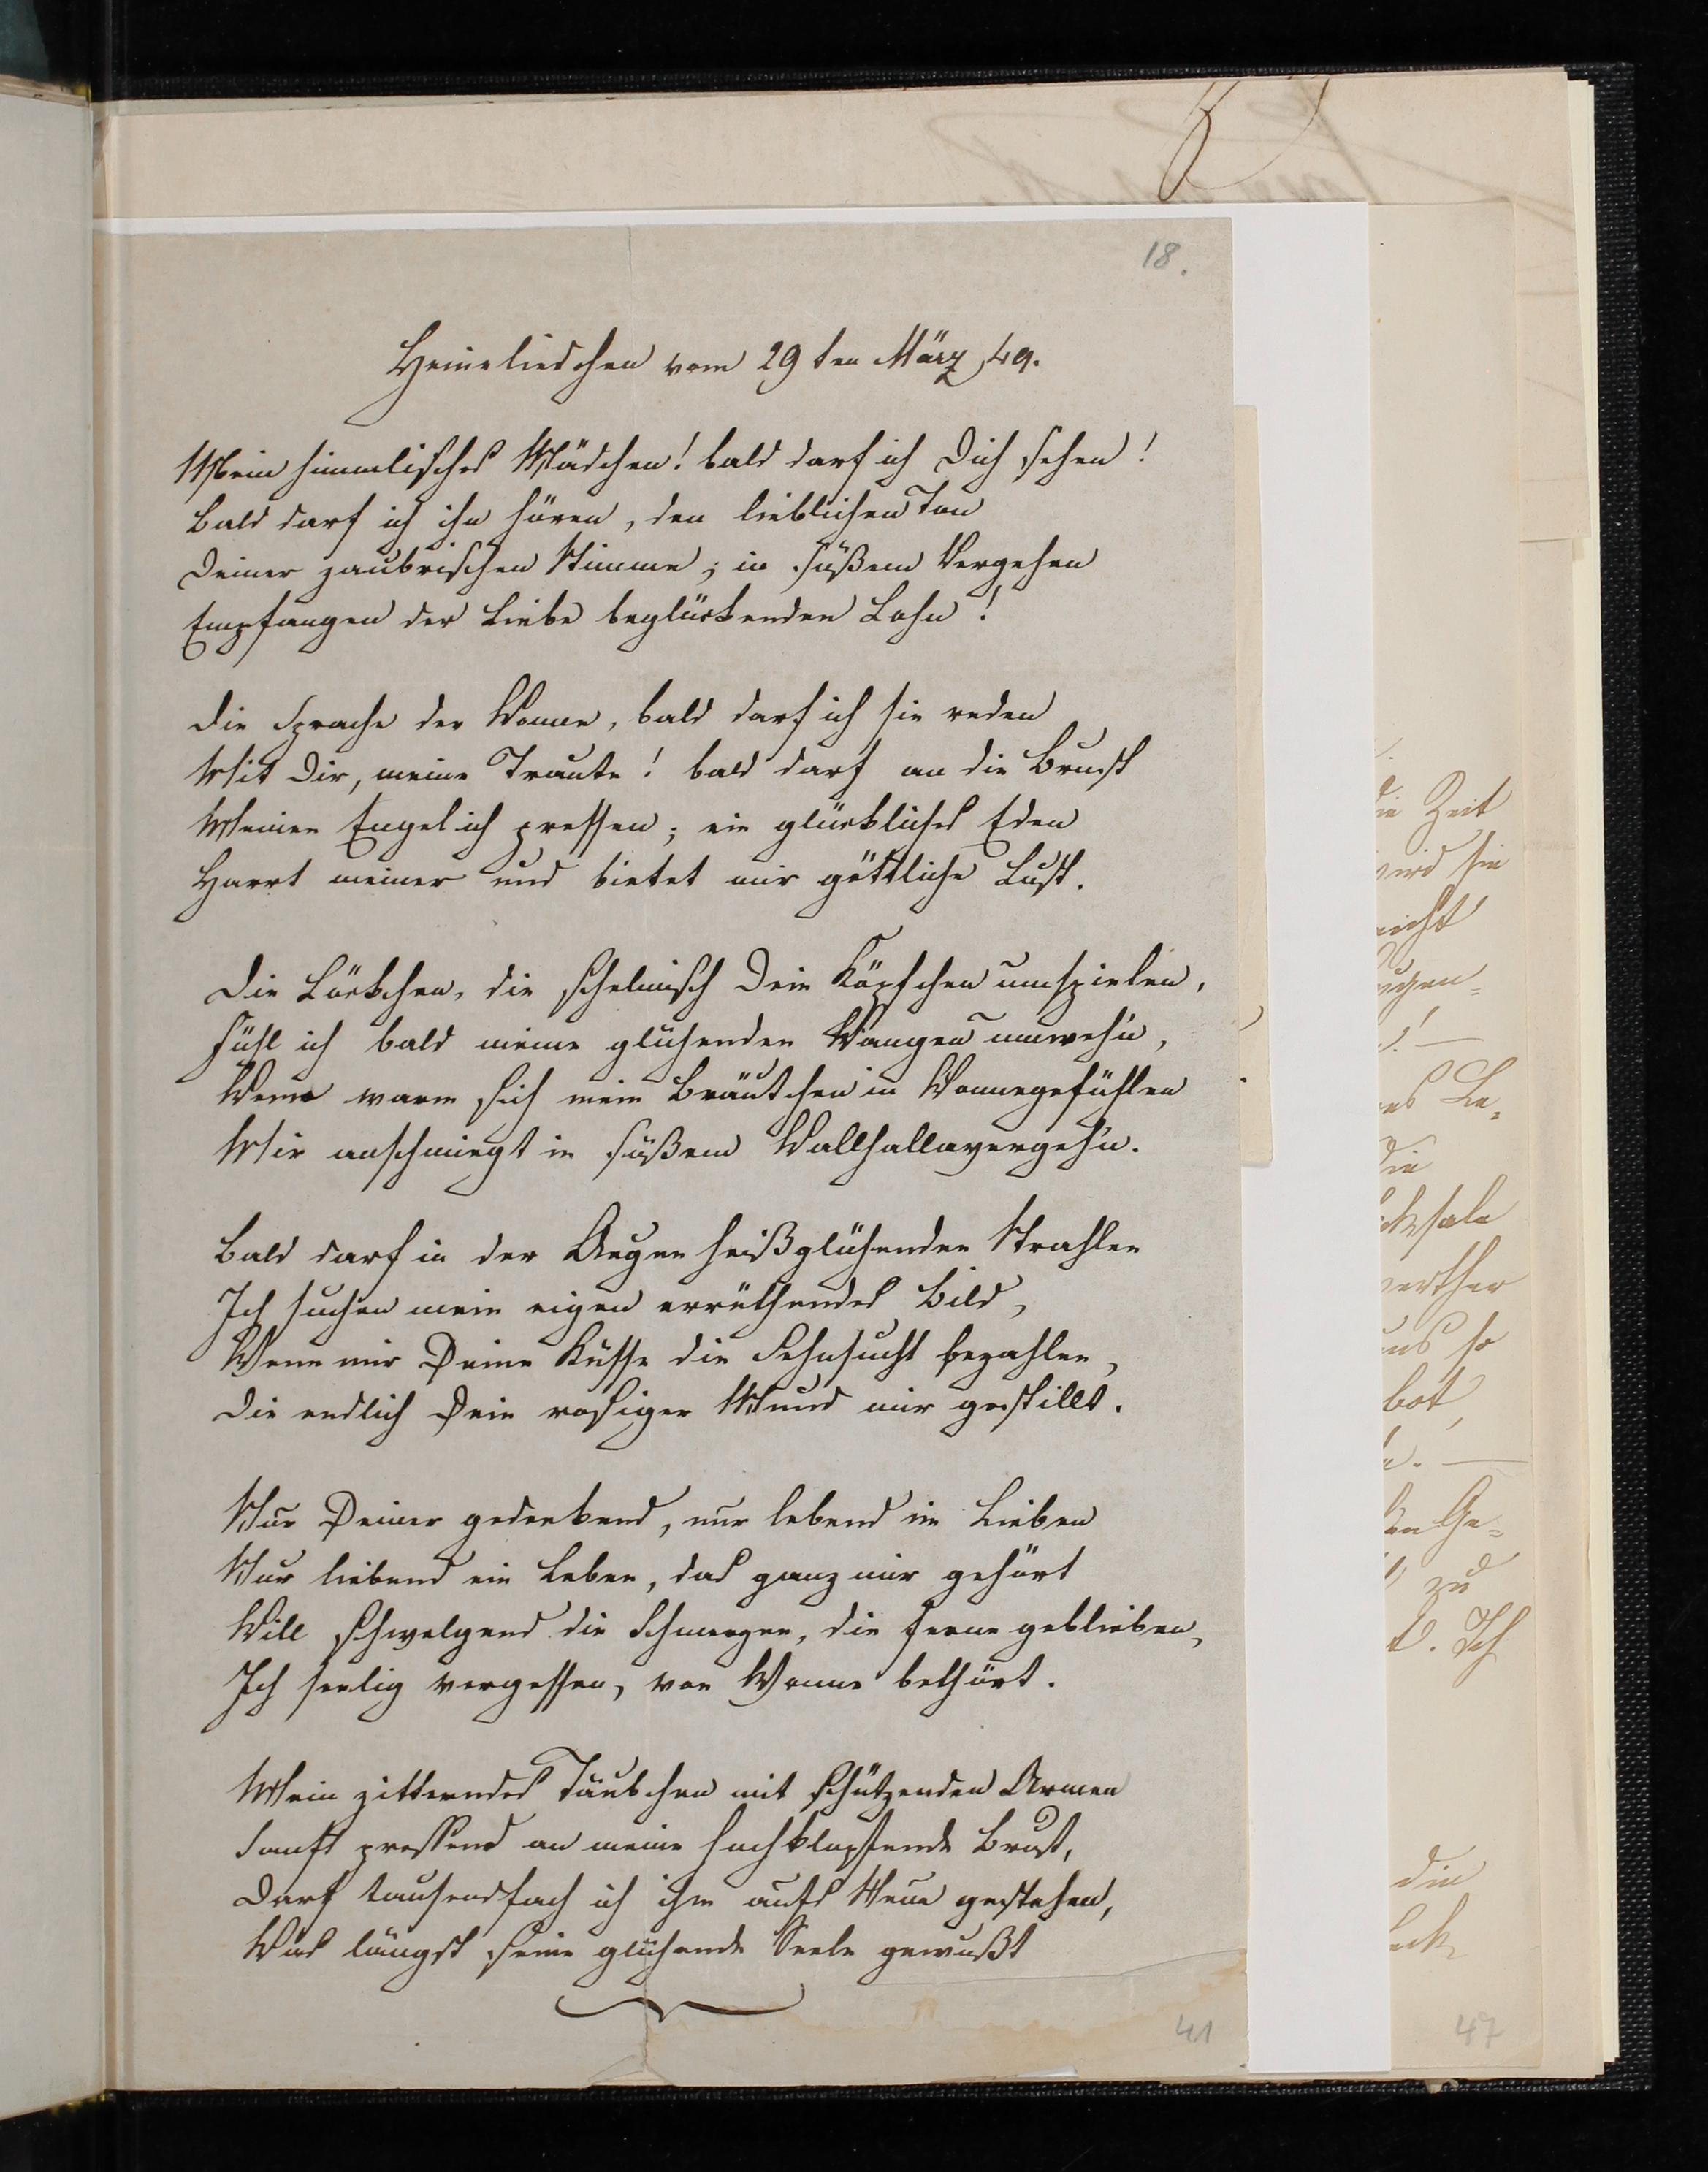 18.
Heineliedchen vom 29ten März 49.
Mein himmlisches Mädchen! bald darf ich Dich sehen!
Bald darf ich ihn hören, den lieblichen Ton
Deiner zaubrischen Stimme; in süßem Vergehen
Empfangen der Liebe beglückenden Lohn!
Die Sprache der Wonne, bald darf ich sie reden
Mit Dir, meine Traute! bald darf an die Brust
Meinen Engel ich pressen; ein glückliches Eden
Harrt meiner und bietet mir göttliche Lust.
Die Löckchen, die schelmisch Dein Köpfchen umspielen,
Fühl ich bald meine glühenden Wangen umweh'n,
Wenn warm sich mein Bräutchen in Wonnegefühlen
Mir anschmiegt in süßem Wallhallavergeh'n.
Bald darf in der Augen heißglühenden Strahlen
Ich suchen mein eigen erröthendes Bild,
Wenn mir Deine Küsse die Sehnsucht bezahlen,
Die endlich Dein rosiger Mund mir gestillt.
Nur Deiner gedenkend, nur lebend im Lieben
Nur liebend ein Leben, das ganz mir gehört
Will schwelgend die Schmerzen, die ferne geblieben,
Ich seelig vergessen, von Wonne bethört.
Mein zitterndes Täubchen mit schützenden Armen
Sanft pressend an meine hochklopfende Brust,
Darf tausendfach ich ihm aufs Neue gestehen,
Was längst seine glühende Seele gewußt
41
die Zeit
wird sie
nicht
Le-
die
werther
uns so
bot,
Ge-
zu
Ich
die
47